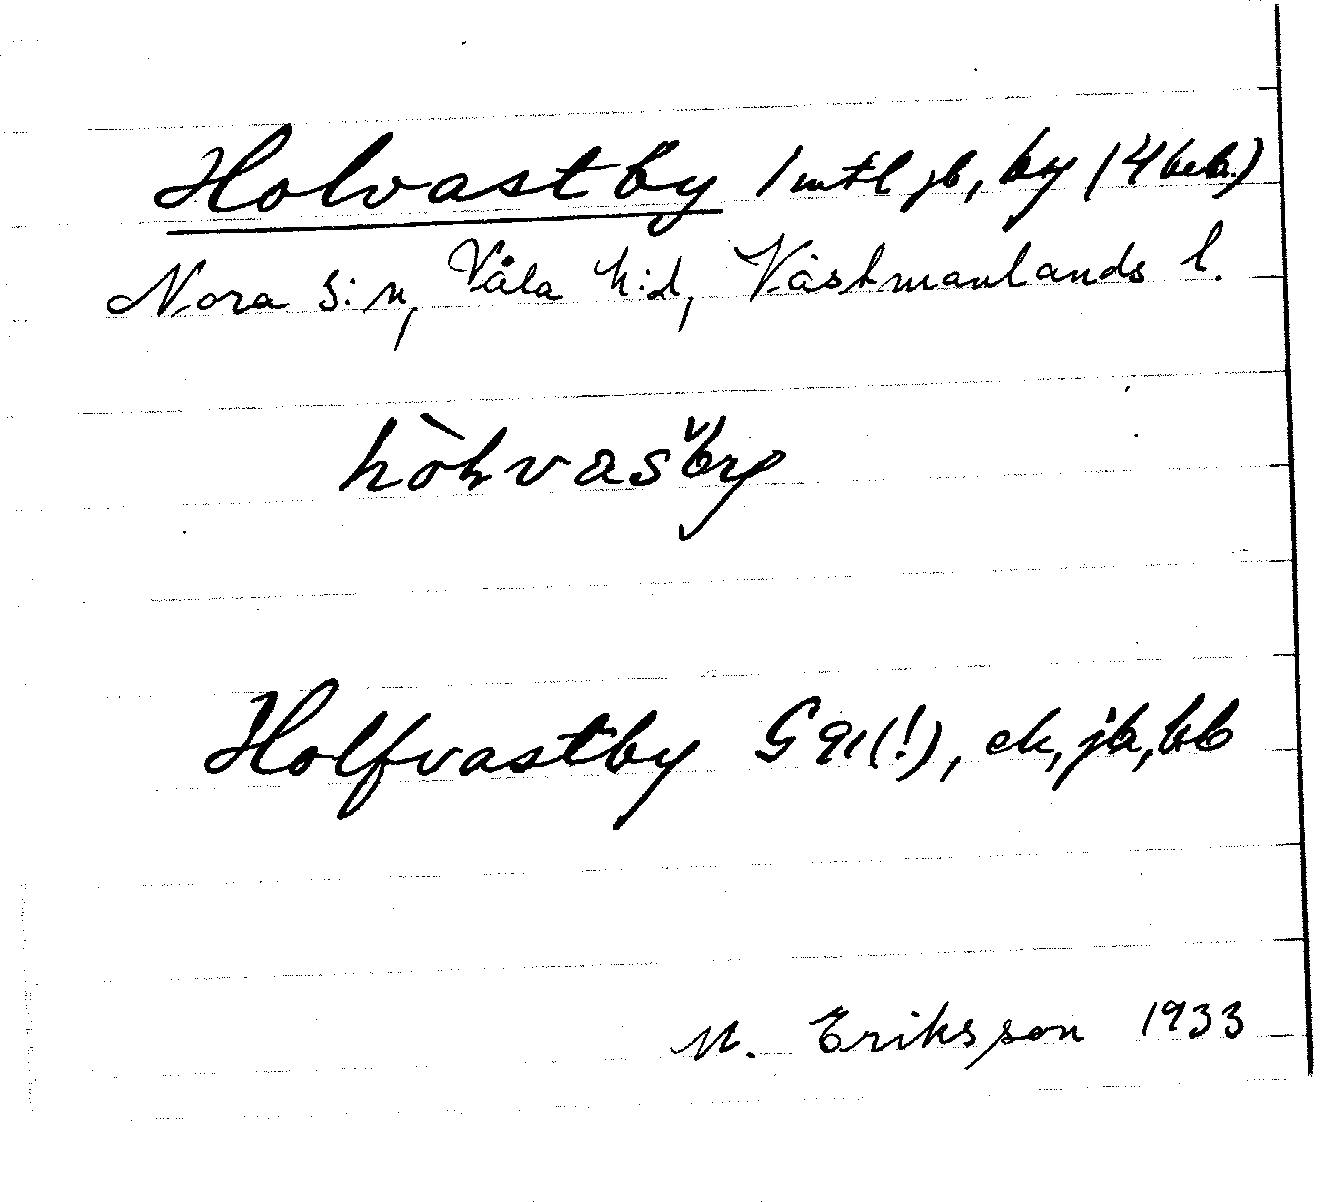 Holvastby 1 mtl jb, by (4 beb.)
Nora s:n, Våla h:d, Västmanlands l.
hòhvasby
Holfvastby G 91(!), ek, jb, bb
M. Eriksson 1933